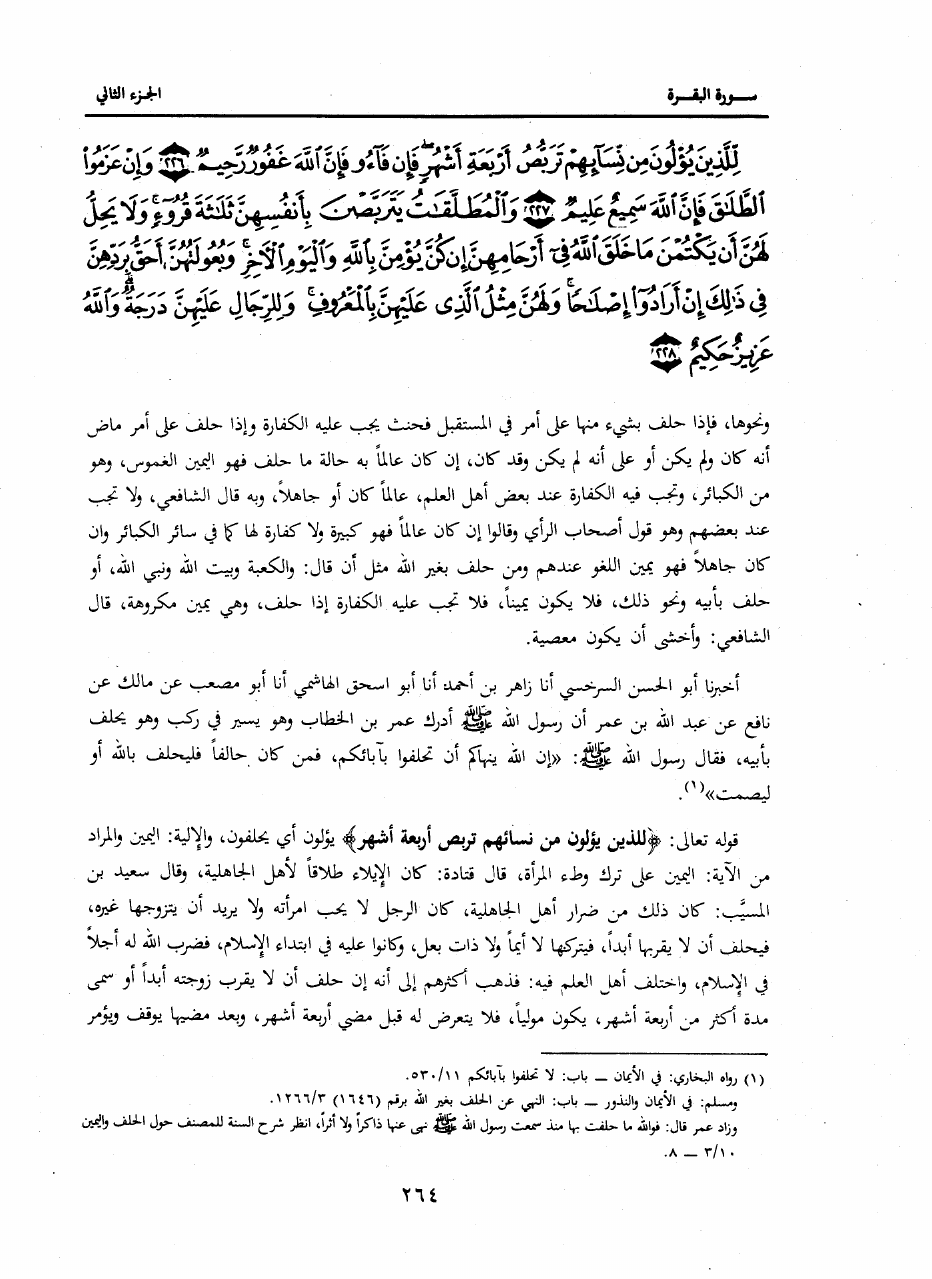 سورة البقرة
الجزء الثاني
لِّلَّذِينَ يُؤْلُونَ مِن نِّسَآئِهِمْ تَرَبُّصُ أَرْبَعَةِ أَشْهُرٍ ۖ فَإِن فَآءُو فَإِنَّ ٱللَّهَ غَفُورٌ رَّحِيمٌ ٢٢٦ وَإِنْ عَزَمُوا۟
ٱلطَّلَـٰقَ فَإِنَّ ٱللَّهَ سَمِيعٌ عَلِيمٌ ٢٢٧ وَٱلْمُطَلَّقَـٰتُ يَتَرَبَّصْنَ بِأَنفُسِهِنَّ ثَلَـٰثَةَ قُرُوٓءٍ ۚ وَلَا يَحِلُّ
لَهُنَّ أَن يَكْتُمْنَ مَا خَلَقَ ٱللَّهُ فِىٓ أَرْحَامِهِنَّ إِن كُنَّ يُؤْمِنَّ بِٱللَّهِ وَٱلْيَوْمِ ٱلْـَٔاخِرِ ۚ وَبُعُولَتُهُنَّ أَحَقُّ بِرَدِّهِنَّ
فِى ذَٰلِكَ إِنْ أَرَادُوٓا۟ إِصْلَـٰحًا ۚ وَلَهُنَّ مِثْلُ ٱلَّذِى عَلَيْهِنَّ بِٱلْمَعْرُوفِ ۚ وَلِلرِّجَالِ عَلَيْهِنَّ دَرَجَةٌ ۗ وَٱللَّهُ
عَزِيزٌ حَكِيمٌ ٢٢٨
ونحوها، فإذا حلف بشيء منها على أمر في المستقبل فحنث يجب عليه الكفارة وإذا حلف على أمر ماض
أنه كان ولم يكن أو على أنه لم يكن وقد كان، إن كان عالماً به حالة ما حلف فهو اليمين الغموس، وهو
من الكبائر، وتجب فيه الكفارة عند بعض أهل العلم، عالماً كان أو جاهلاً، وبه قال الشافعي، ولا تجب
عند بعضهم وهو قول أصحاب الرأي وقالوا إن كان عالماً فهو كبيرة ولا كفارة لها كما في سائر الكبائر وان
كان جاهلاً فهو يمين اللغو عندهم ومن حلف بغير الله مثل أن قال: والكعبة وبيت الله ونبي الله، أو
حلف بأبيه ونحو ذلك، فلا يكون يميناً، فلا تجب عليه الكفارة إذا حلف، وهي يمين مكروهة، قال
الشافعي: وأخشى أن يكون معصية.
أخبرنا أبو الحسن السرخسي أنا زاهر بن أحمد أنا أبو اسحق الهاشمي أنا أبو مصعب عن مالك عن
نافع عن عبد الله بن عمر أن رسول الله ﷺ أدرك عمر بن الخطاب وهو يسير في ركب وهو يحلف
بأبيه، فقال رسول الله ﷺ: «إن الله ينهاكم أن تحلفوا بآبائكم، فمن كان حالفاً فليحلف بالله أو
ليصمت»(١).
قوله تعالى: ﴿للذين يؤلون من نسائهم تربص أربعة أشهر﴾ يؤلون أي يحلفون، والإلية: اليمين والمراد
من الآية: اليمين على ترك وطء المرأة، قال قتادة: كان الإيلاء طلاقاً لأهل الجاهلية، وقال سعيد بن
المسيَّب: كان ذلك من ضرار أهل الجاهلية، كان الرجل لا يحب امرأته ولا يريد أن يتزوجها غيره،
فيحلف أن لا يقربها أبداً، فيتركها لا أيماً ولا ذات بعل، وكانوا عليه في ابتداء الإسلام، فضرب الله له أجلاً
في الإسلام، واختلف أهل العلم فيه: فذهب أكثرهم إلى أنه إن حلف أن لا يقرب زوجته أبداً أو سمى
مدة أكثر من أربعة أشهر، يكون مولياً، فلا يتعرض له قبل مضي أربعة أشهر، وبعد مضيها يوقف ويؤمر
(١) رواه البخاري: في الأيمان – باب: لا تحلفوا بآبائكم ٥٣٠/١١.
ومسلم: في الأيمان والنذور – باب: النهي عن الحلف بغير الله برقم (١٦٤٦) ١٢٦٦/٣.
وزاد عمر قال: فوالله ما حلفت بها منذ سمعت رسول الله ﷺ نهى عنها ذاكراً ولا أثراً، انظر شرح السنة للمصنف حول الحلف واليمين
٣/١٠ – ٨.
٢٦٤